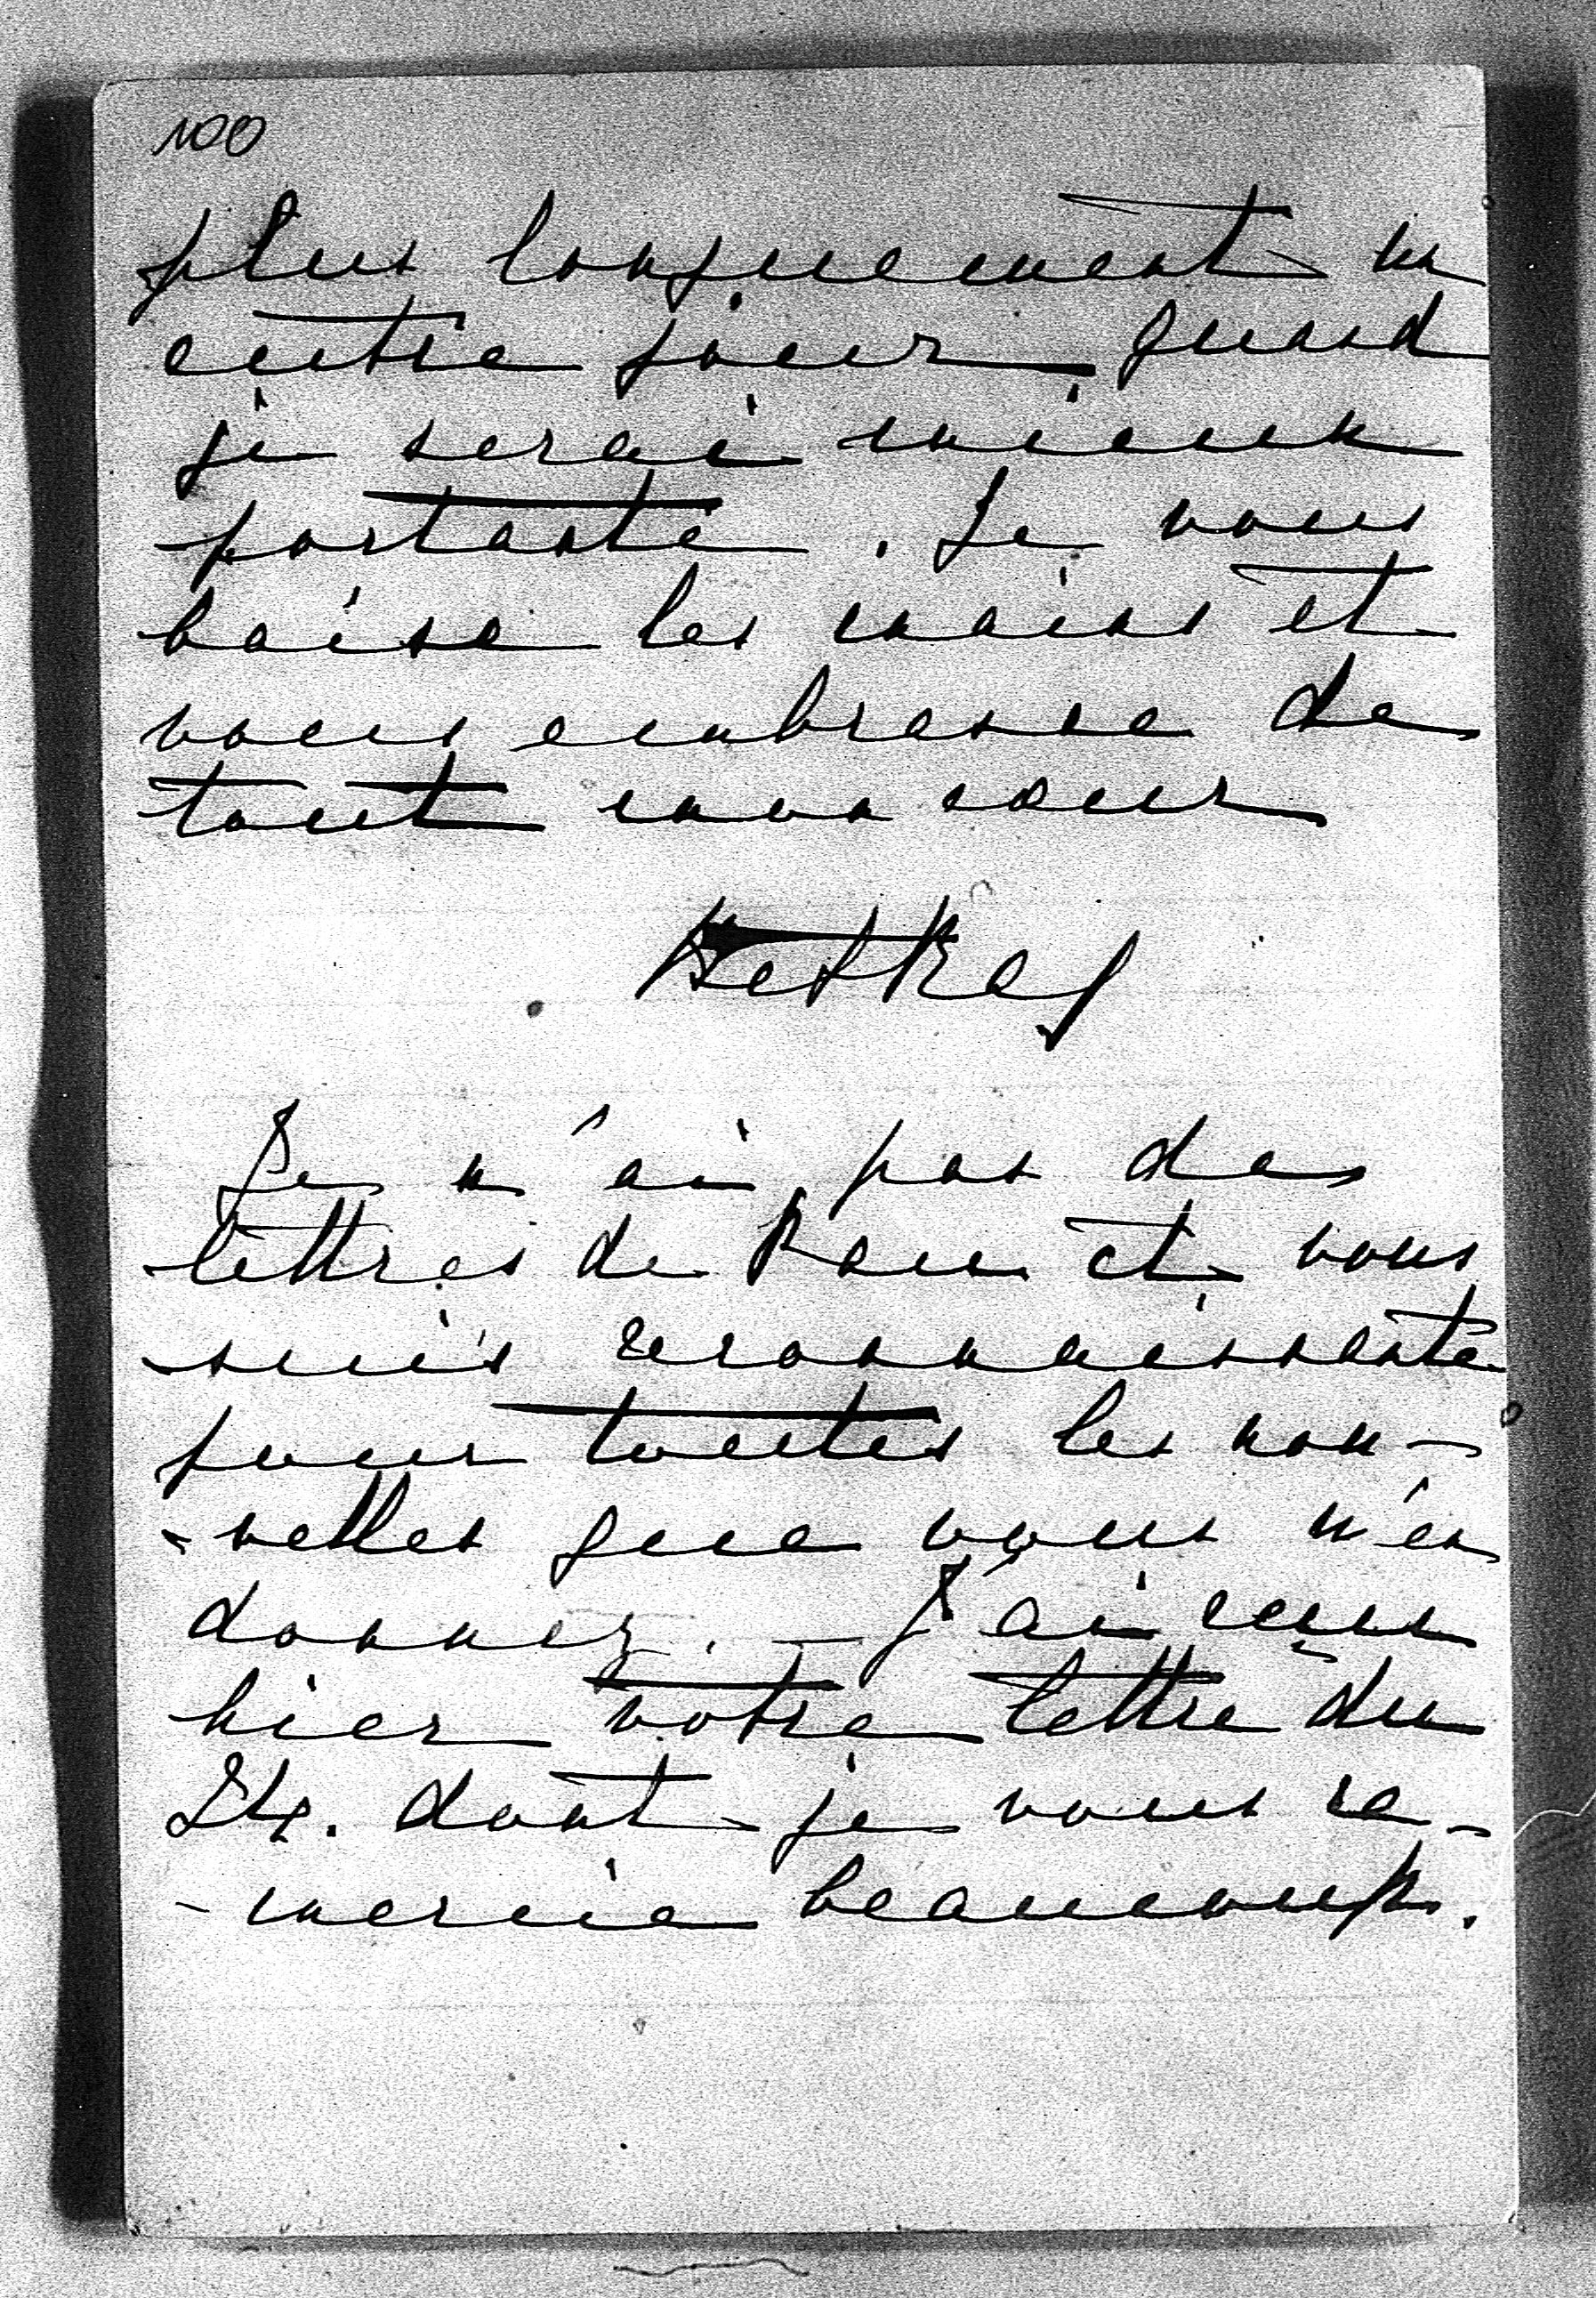 100
plus longuement un
autre jour, quand
je serai mieux
portante. Je vous
baise les mains et
vous embrasse de
tout mon cœur
Je n'ai pas des
lettres de et vous
suis reconnaissante
pour toutes les nou-
-velles que vous m'en
donnez. — J'ai reçue
hier votre lettre du
24. dont je vous re-
-mercie beaucoup.